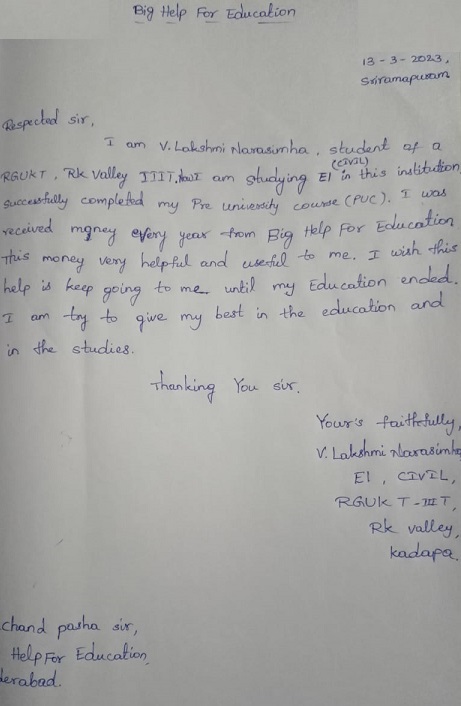 Big Help For Education
13-3-2023,
Sriramapuram
Respected sir,
I am V. Lakshmi Narasimha, student of a
RGUKT, Rk Valley IIIT, Now I am studying E1 (CIVIL) in this institution
successfully completed my Pre university course (PUC). I was
received money every year from Big Help For Education
this money very helpful and useful to me. I wish this
help is keep going to me until my Education ended.
I am try to give my best in the education and
in the studies.
Thanking You sir.
Your's faithfully,
V. Lakshmi Narasimha
E1, CIVIL,
RGUKT-IIIT,
Rk valley,
kadapa.
Chand pasha sir,
Help For Education,
derabad.